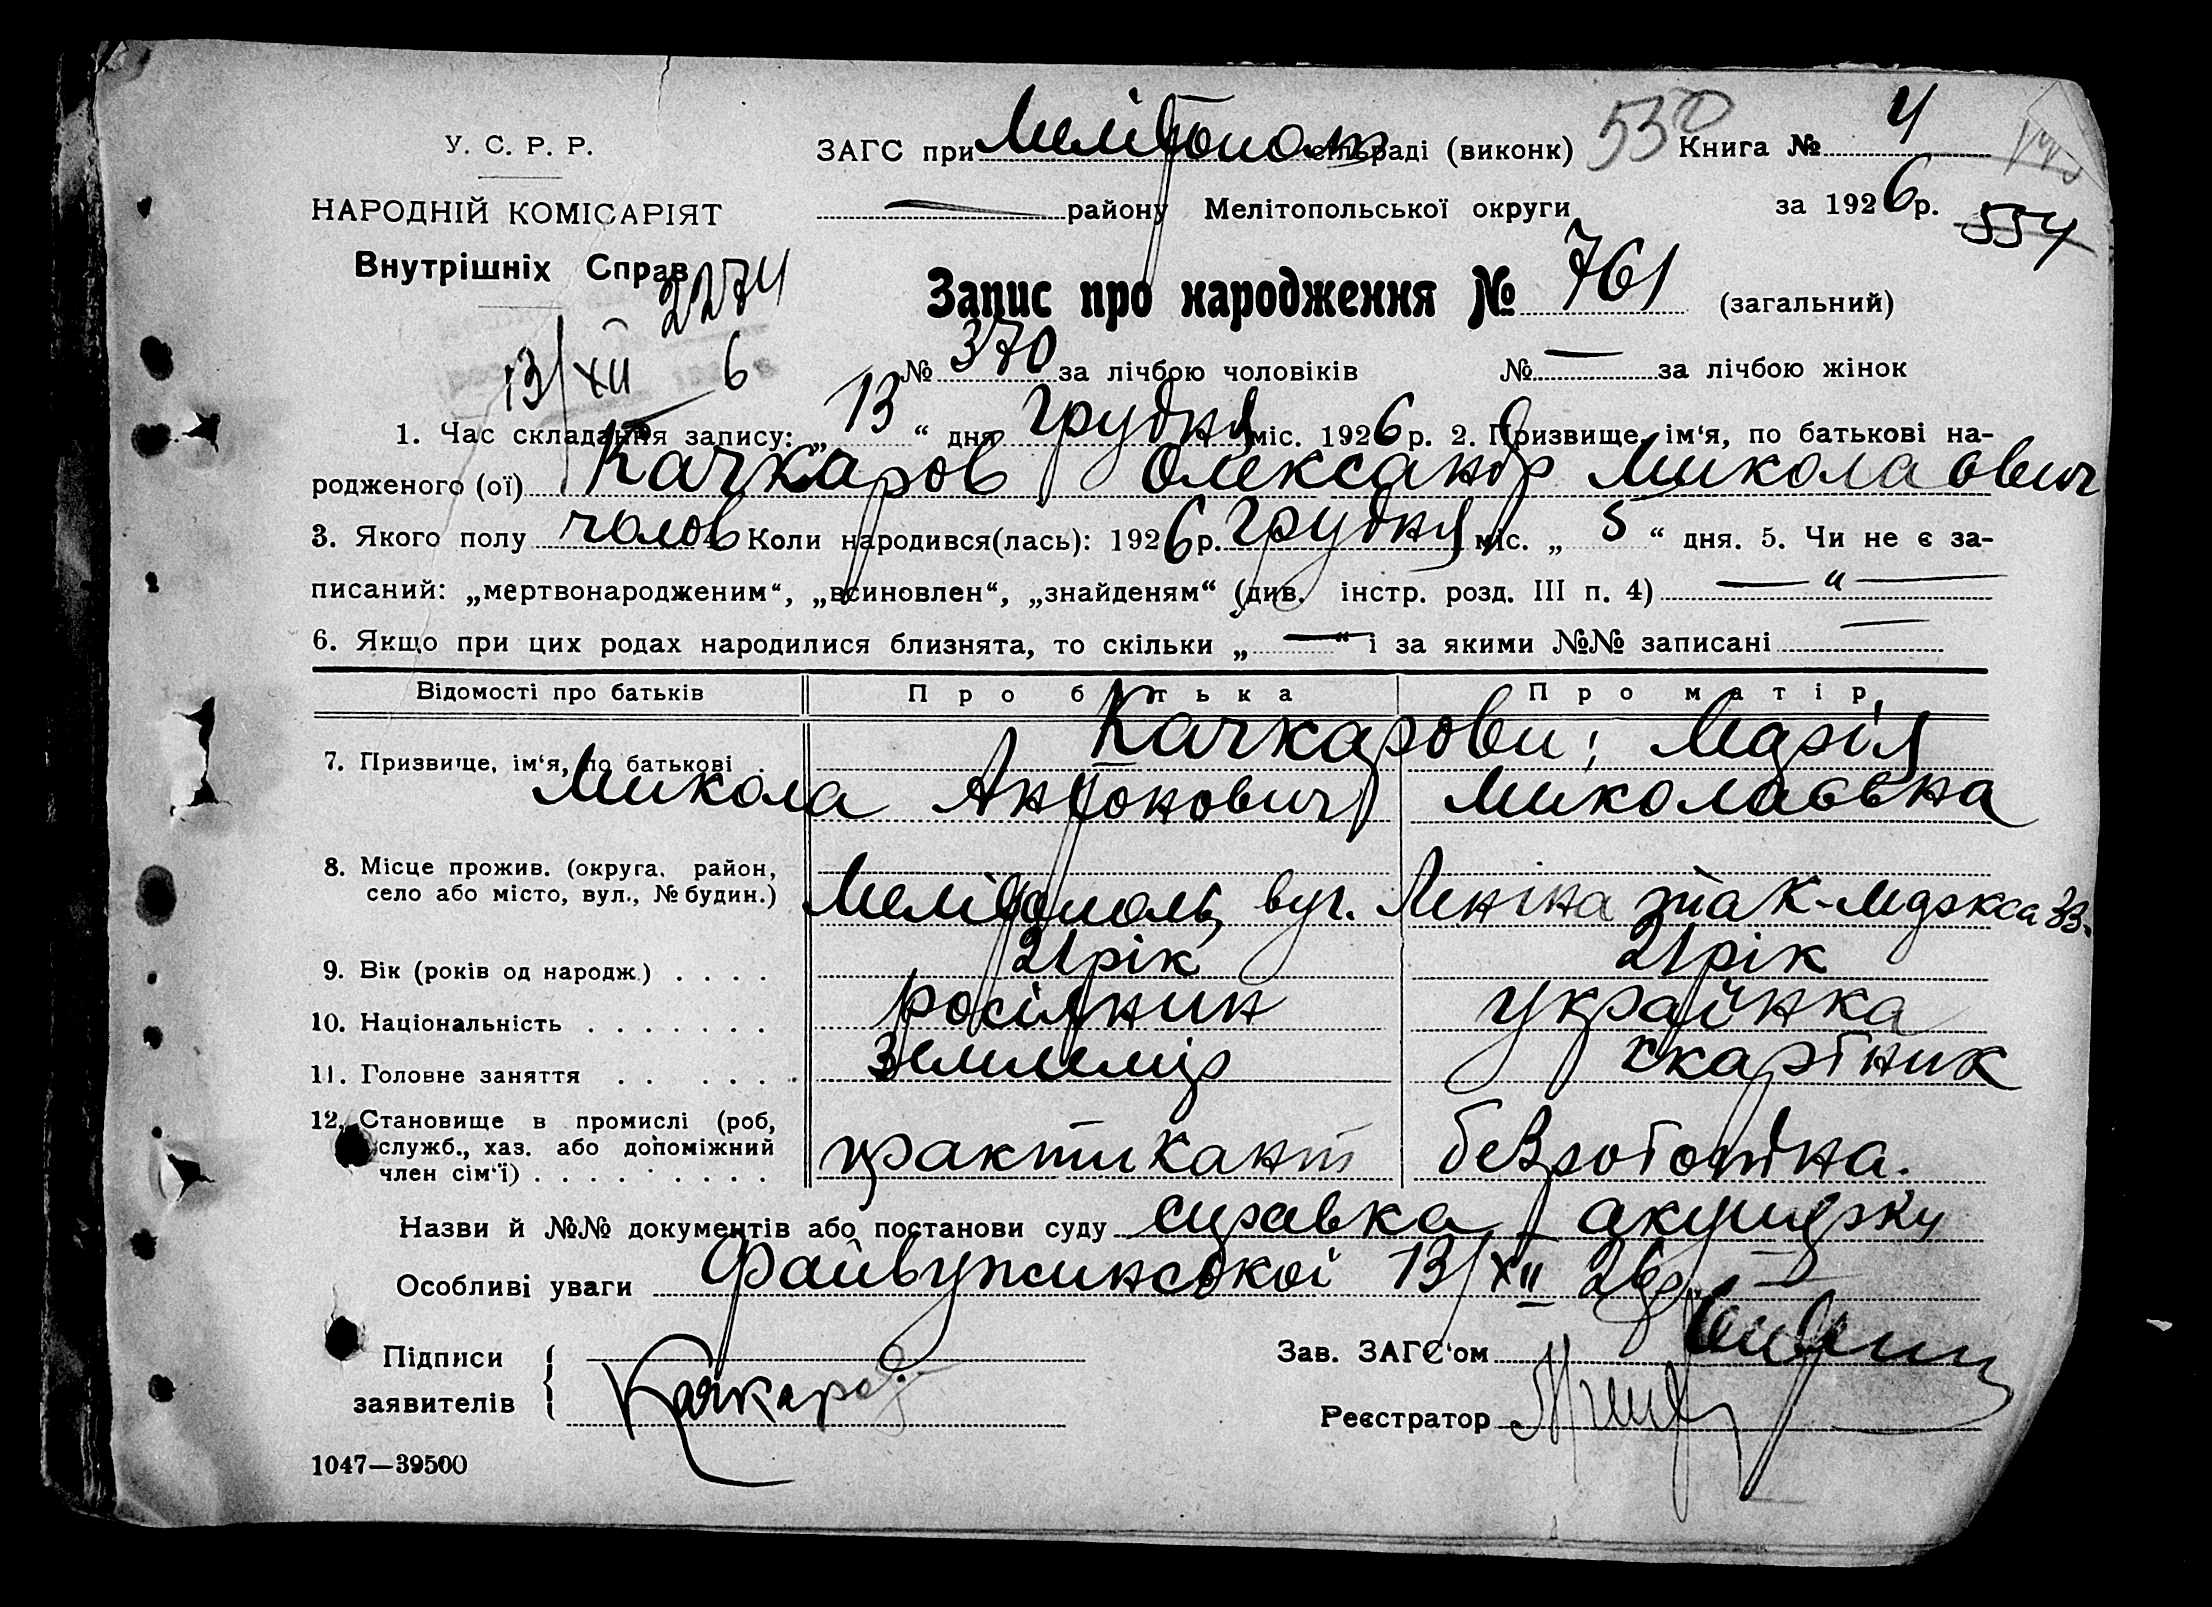 У. С. Р. Р.
НАРОДНІЙ КОМІСАРІЯТ
Внутрішніх Справ
2274
13/XII 6
ЗАГС при Мелітополь сільраді (виконк) 530 Книга № 4
— району Мелітопольської округи за 1926 р. 554
Запис про народження № 761 (загальний)
№ 370 за лічбою чоловіків № — за лічбою жінок
1. Час складання запису: „ 13 “ дня грудня міс. 1926 р. 2. Призвище, ім‘я, по батькові на-
родженого (ої) Качкаров Олександр Миколаович
3. Якого полу чолов Коли народився(лась): 1926 р. грудня міс. „ 5 “ дня. 5. Чи не є за-
писаний: „мертвонародженим“, „всиновлен“, „знайденям“ (див. інстр. розд. III п. 4) — „ —
6. Якщо при цих родах народилися близнята, то скільки „ — “ і за якими №№ записані —
Відомості про батьків Про батька Про матір
7. Призвище, ім‘я, по батькові . Качкарови; Марія
Микола Антонович Миколаовна
8. Місце прожив. (округа, район,
село або місто, вул., № будин.) Мелітополь, вул. Леніна та К-Маркса 33.
9. Вік (років од народж.) . . . . 21 рік 21 рік
10. Національність . . . . . . . росіянин українка
11. Головне заняття . . . . . . землемір скарбник
12. Становище в промислі (роб,
служб., хаз. або допоміжний
член сім‘ї) . . . . . . . . практикант безробітна.
Назви й №№ документів або постанови суду справка акушерки
Особливі уваги Файвужинської 13/XII 26р. —
Підписи
заявителів Качкаров
Зав. ЗАГС‘ом
Реєстратор
1047—39500